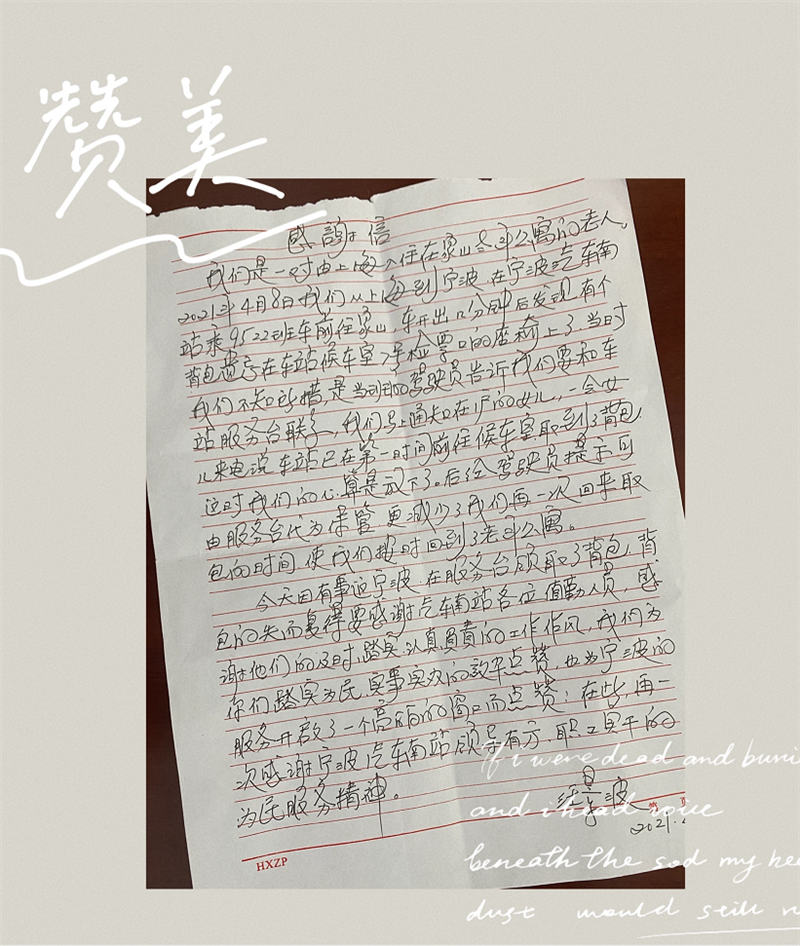 赞美
感謝信
我们是一对由上海入住在象山老年公寓的老人。
2021年4月8日我们从上海到宁波，在宁波汽车南
站乘9522班车前往象山，车开出几分钟后发现有个
背包遗忘在车站候车室7号检票口的座椅上了，当时
我们不知所措，是当班的驾驶员告诉我们要和车
站服务台联系，我们马上通知在沪的女儿，一会女
儿来电说车站已在第一时间前往候车室取到了背包，
这时我们的心算是放下了。后经驾驶员提示可
由服务台代为保管，更减少了我们再一次回来取
包的时间，使我们按时回到了老年公寓。
今天因有事返宁波，在服务台领取了背包，背
包的失而复得要感谢汽车南站各位值勤人员，感
谢他们的及时，踏实，认真負責的工作作风，我们为
你们踏实为民，实事实办的效率点赞，也为宁波的
服务开啟了一个高质的窗口而点赞；在些，再一
次感谢宁波汽车南站领导有方，职工实干的
为民服务精神。
波
2021.
HXZP
If i were dead and buri
and i head voice
beneath the sod my hea
dust would still